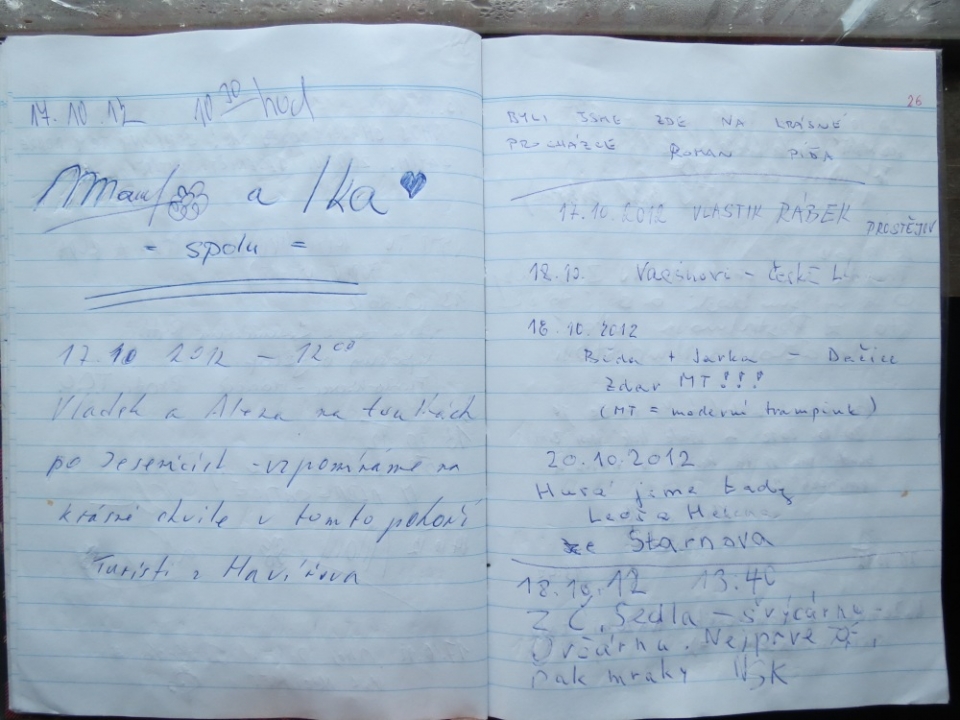 17.10.12 10 30 hod
a Ika
= spolu =
17.10 2012 - 12 00
Vladek a Alena na toulkách
po Jesenících - vzpomínáme na
krásné chvíle v tomto pohoří
Turisti z Havířova
26
BYLI JSME ZDE NA KRÁSNÉ
PROCHÁZCE ROMAN PÍŠA
17.10.2012 VLASTIK RÁBEK PROSTĚJOV
18.10. České
18.10.2012
+ Jarka - Dačice
Zdar MT!!!
(MT = moderní trampink)
20.10.2012
Hurá jsme tady
Leoš a
ze Štarnova
18.10.12 13.40
Z Č. Sedla - švýcárna -
Ovčárna. Nejprve
pak mraky